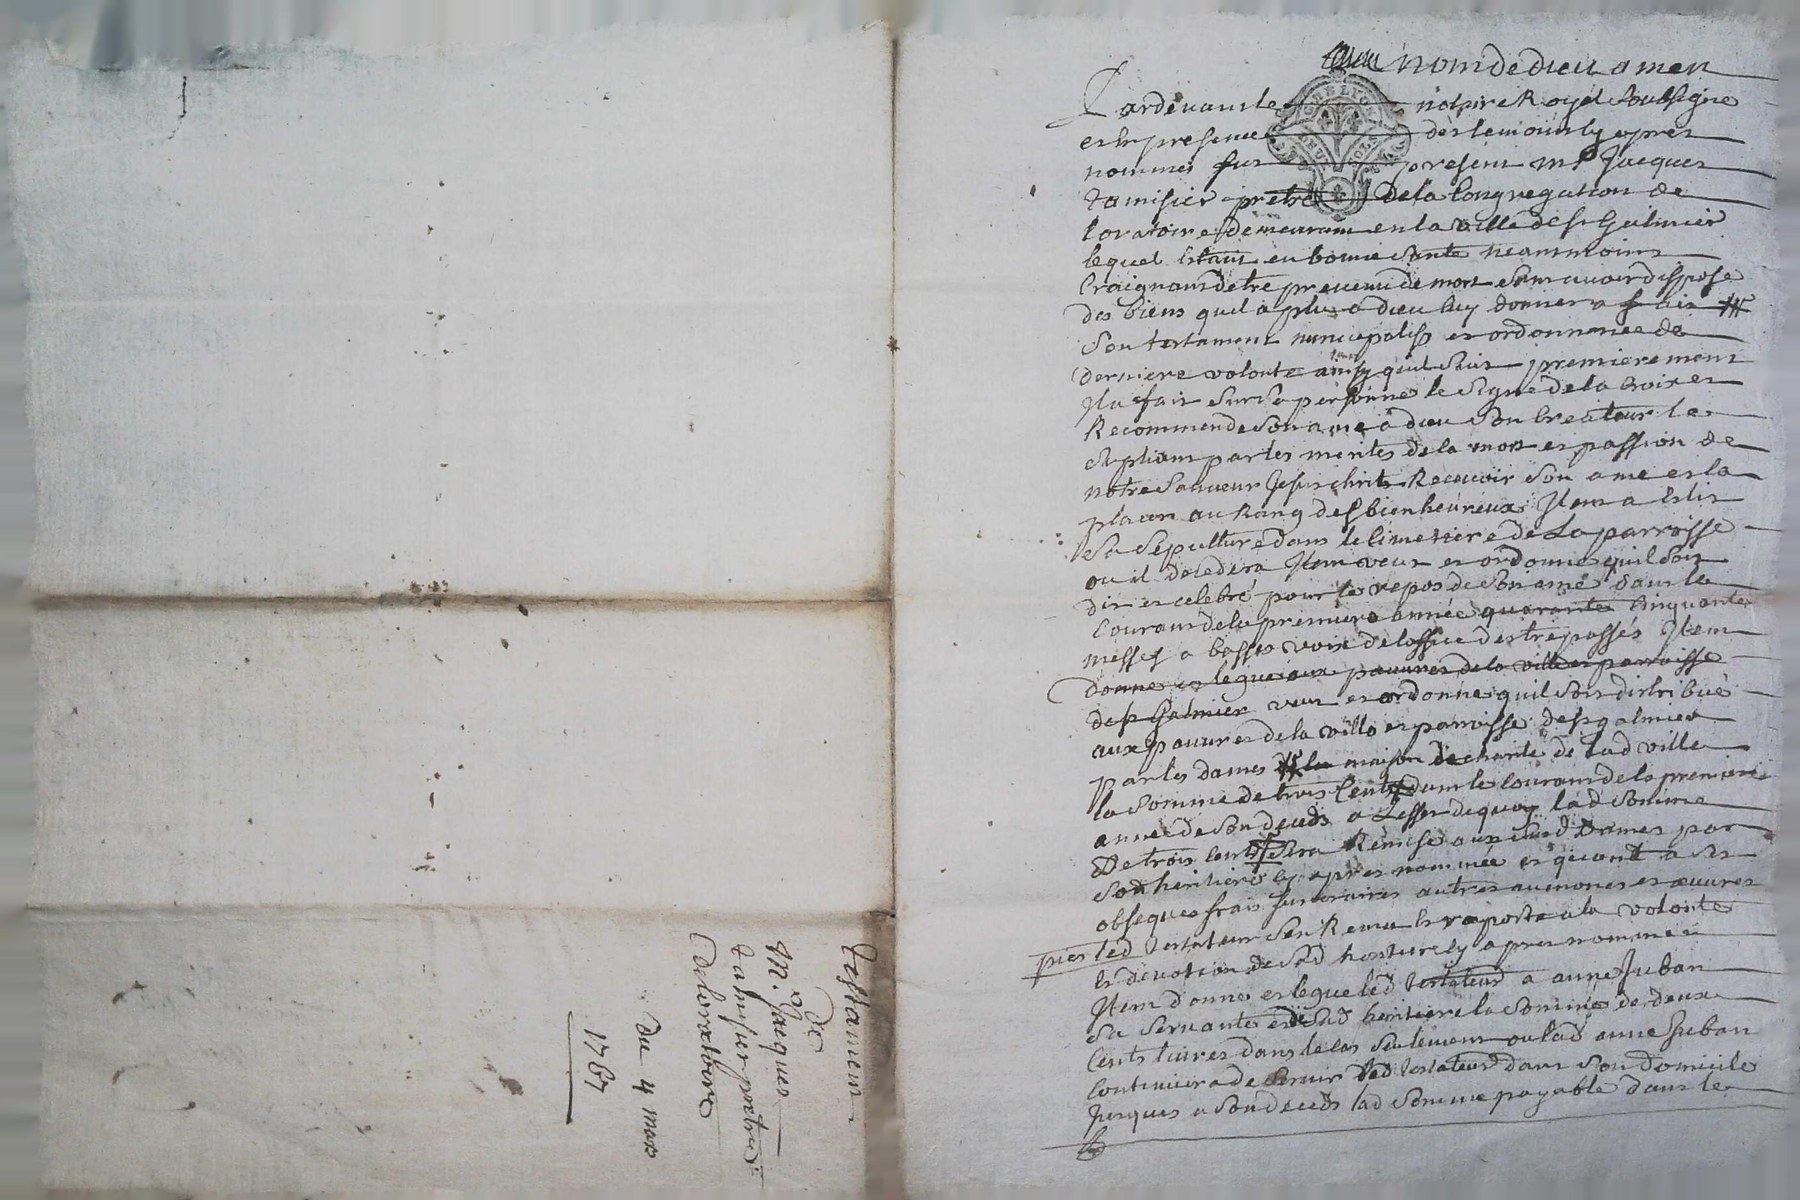 nom de dieu amen
Pardevant le notaire Royal soubsigne
et en presence des temoins cy apres
nommes fut present mre Jacques
tamisier pretre de la Congregation de
loratoire demeurant en la ville de st Galmier
lequel Estant en bonne sante neanmoins
Craignant detre prevenu de mort sans avoir dispose
des biens quil a plu a dieu luy donner a fait
son testament nuncupatif et ordonnance de
derniere volonte ainsy quil suit premierement
Il a fait sur sa personne le signe de la Croix et
Recommende son ame a dieu son Createur le
supliant par les merites de la mort et passion de
notre sauveur Jesus christ Recevoir son ame et la
placer au Rang des bienheureux Item a Eslit
sa sepulture dans le Cimetiere de La parroisse
ou il decedera Item veut et ordonne quil soit
dit et celebré pour le repos de son ame dans le
Courant de la premiere année quarante Cinquante
messes a basses voix de loffice des trepassés Item
donne et legue aux pauvres de la ville et parroisse
de st Galmier veut et ordonne quil soit distribué
aux pauvres de la ville et parroisse de st galmier
par les dames de la maison de charité de lad ville
la somme de trois Cents dans le Courant de la premiere
année de son deceds a Leffet de quoy lad somme
De trois Cents sera Remise aux susd Dames par
son heritiere cy apres nommée et quant a ses
obseques frais funeraires autres aumones et œuvres
pies led testateur sen Remet et raporte a la volonté
Et devotion de sad heritiere cy apres nommee
Item donne et legue led testateur a anne Juban
sa servante et de sad heritiere la somme de deux
Cents livres dans le Cas seulement ou lad anne Juban
Continuera de servir led testateur dans son domicile
Jusques a son deceds lad somme payable dans le
testament
de
Mr. Jacques
tamisier pretre
de loratoire
Du 4 mars
1767